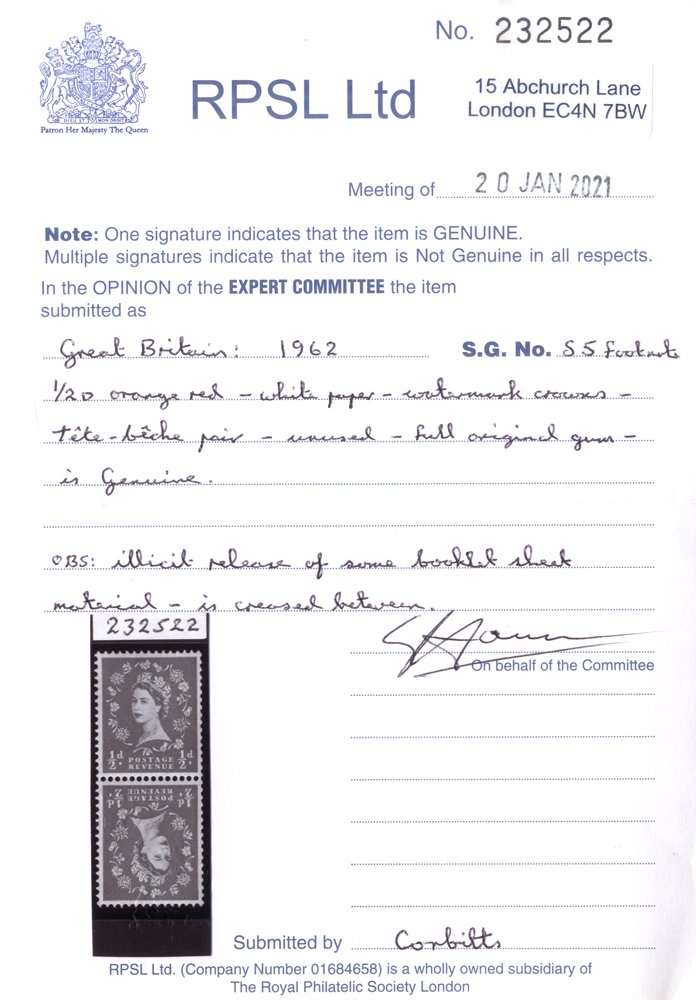 No. 232522
RPSL Ltd
15 Abchurch Lane
London EC4N 7BW
DIEU ET MON DROIT
Patron Her Majesty The Queen
Meeting of 20 JAN 2021
Note: One signature indicates that the item is GENUINE.
Multiple signatures indicate that the item is Not Genuine in all respects.
In the OPINION of the EXPERT COMMITTEE the item
submitted as
Great Britain: 1962 S.G. No. S5 footnote
1/2D orange red – white paper – watermark crowns –
tête-bêche pair – unused – full original gum –
is Genuine.
OBS: illicit release of some booklet sheet
material – is creased between.
232522
On behalf of the Committee
½d POSTAGE REVENUE ½d
½d POSTAGE REVENUE ½d
Submitted by Corbitts
RPSL Ltd. (Company Number 01684658) is a wholly owned subsidiary of
The Royal Philatelic Society London